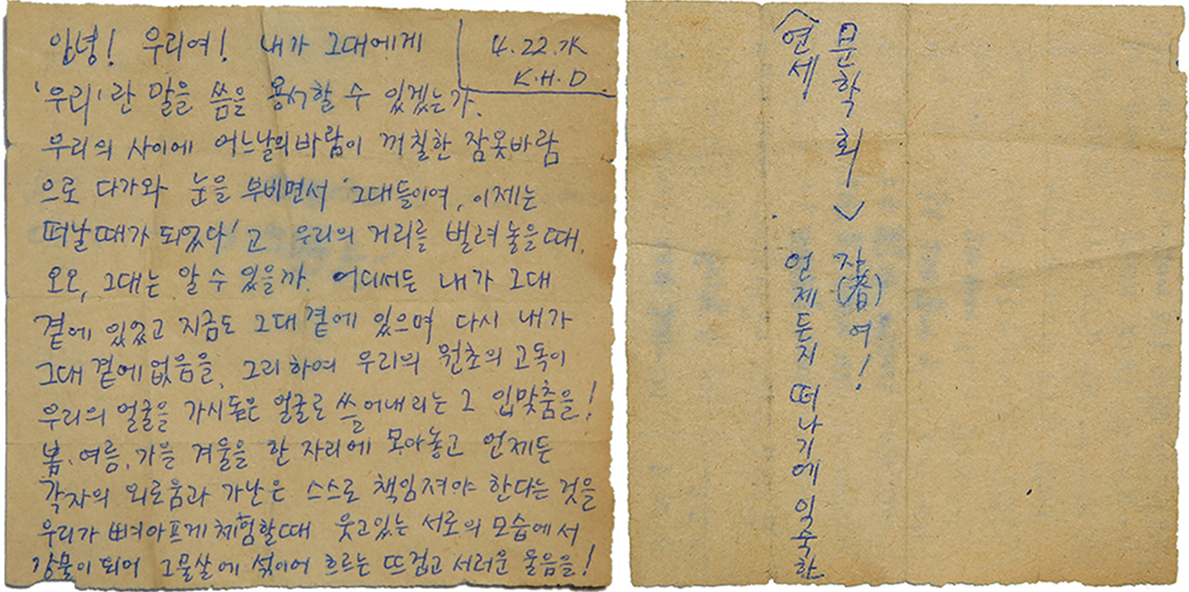 안녕! 우리여! 내가 그대에게
4.22.水
K.H.D
'우리'란 말을 씀을 용서할 수 있겠는가.
우리의 사이에 어느날의 바람이 꺼칠한 잠옷바람
으로 다가와 눈을 부비면서 '그대들이여, 이제는
떠날때가 되었다'고 우리의 거리를 벌려놓을때.
오오, 그대는 알 수 있을까. 어디서든 내가 그대
곁에 있었고 지금도 그대 곁에 있으며 다시 내가
그대 곁에 없음을, 그리하여 우리의 원초의 고독이
우리의 얼굴을 가시돋은 얼굴로 쓸어내리는 그 입맞춤을!
봄·여름, 가을 겨울을 한 자리에 모아놓고 언제든
각자의 외로움과 가난은 스스로 책임져야 한다는 것을
우리가 뼈아프게 체험할때 웃고있는 서로의 모습에서
강물이 되어 그물살에 섞이어 흐르는 뜨겁고 서러운 울음을!
〈연세
문학회〉
언제든지 떠나기에 익숙한
자(者)여!